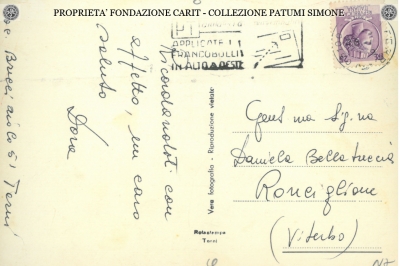 PROPRIETA' FONDAZIONE CARIT - COLLEZIONE PATUMI SIMONE
PT
APPLICATE I
FRANCOBOLLI
IN ALTO A DESTRA
Ricordandoti con
affetto, un caro
saluto
Dora
51 Terni
Vera fotografia - Riproduzione vietata
Terni
Gent.ma Sig.na
Daniela Bellatreccia
Ronciglione
(Viterbo)